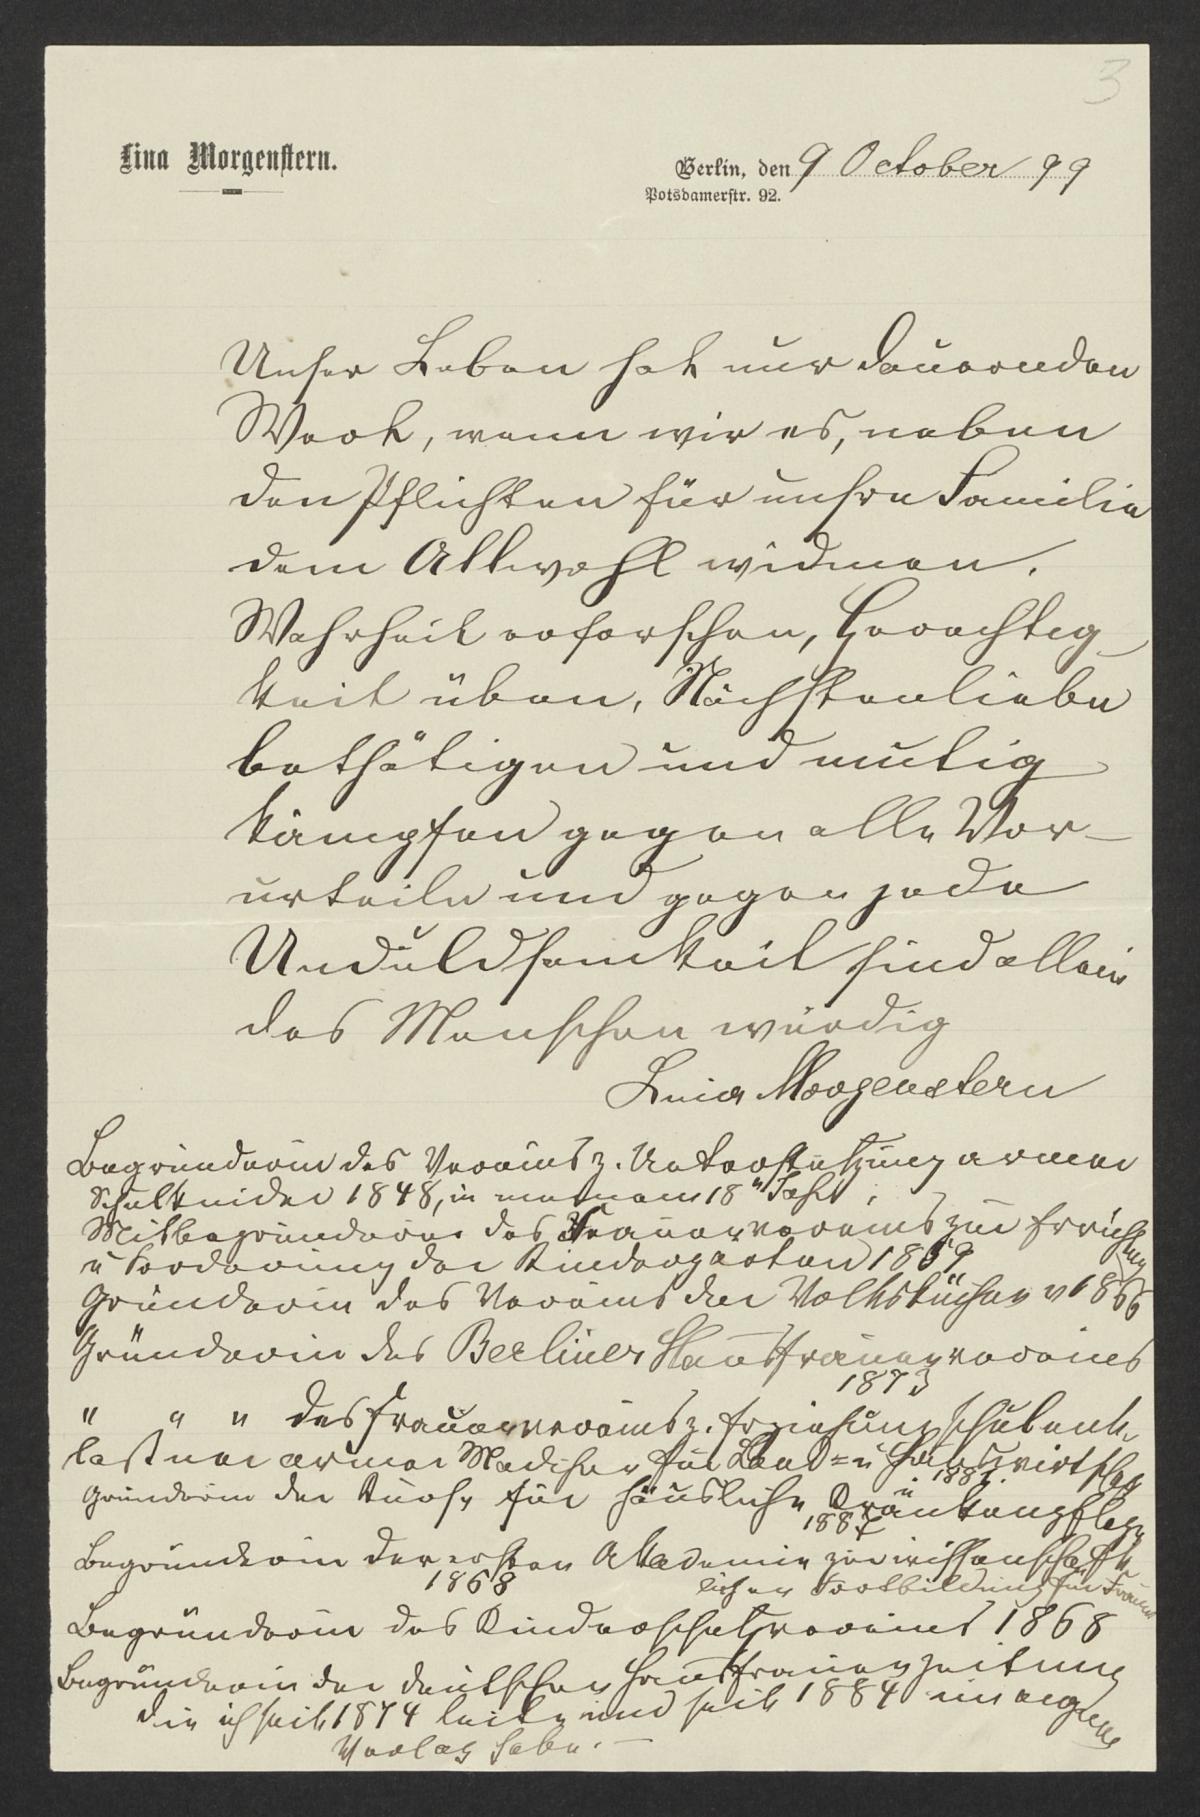 3
Lina Morgenstern.
Berlin, den 9 October 99
Potsdamerstr. 92.
Unser Leben hat nur dauernden
Wert, wenn wir es, neben
den Pflichten für unsre Familie
dem Allwohl widmen.
Wahrheit erforschen, Gerechtig-
keit üben, Nächstenliebe
bethätigen und mutig
kämpfen gegen alle Vor-
urteile und gegen jede
Unduldsamkeit sind allein
des Menschen würdig
Lina Morgenstern
Begründerin des Vereins z. Unterstützung armer
Schulkinder 1848, in meinem 18" Jahr;
Mitbegründerin des Frauenvereins zur Errichtung
u Förderung der Kindergärten 1859
Gründerin des Vereins der Volksküchen v 1866
Gründerin des Berliner Hausfrauenvereins
1873
" " " des Frauenvereins z. Erziehung schulent-
lassener armer Mädchen für Land= u Hauswirtschaft
Gründerin der Kurse für häusliche Krankenpflege
Begründerin der ersten Akademie zur wissenschaft-
1868 licher Fortbildung für Frauen
Begründerin des Kinderschutzvereins 1868
Begründerin der deutschen Hausfrauenzeitung
die ich seit 1874 leite und seit 1884 im eignen
Verlag habe. —